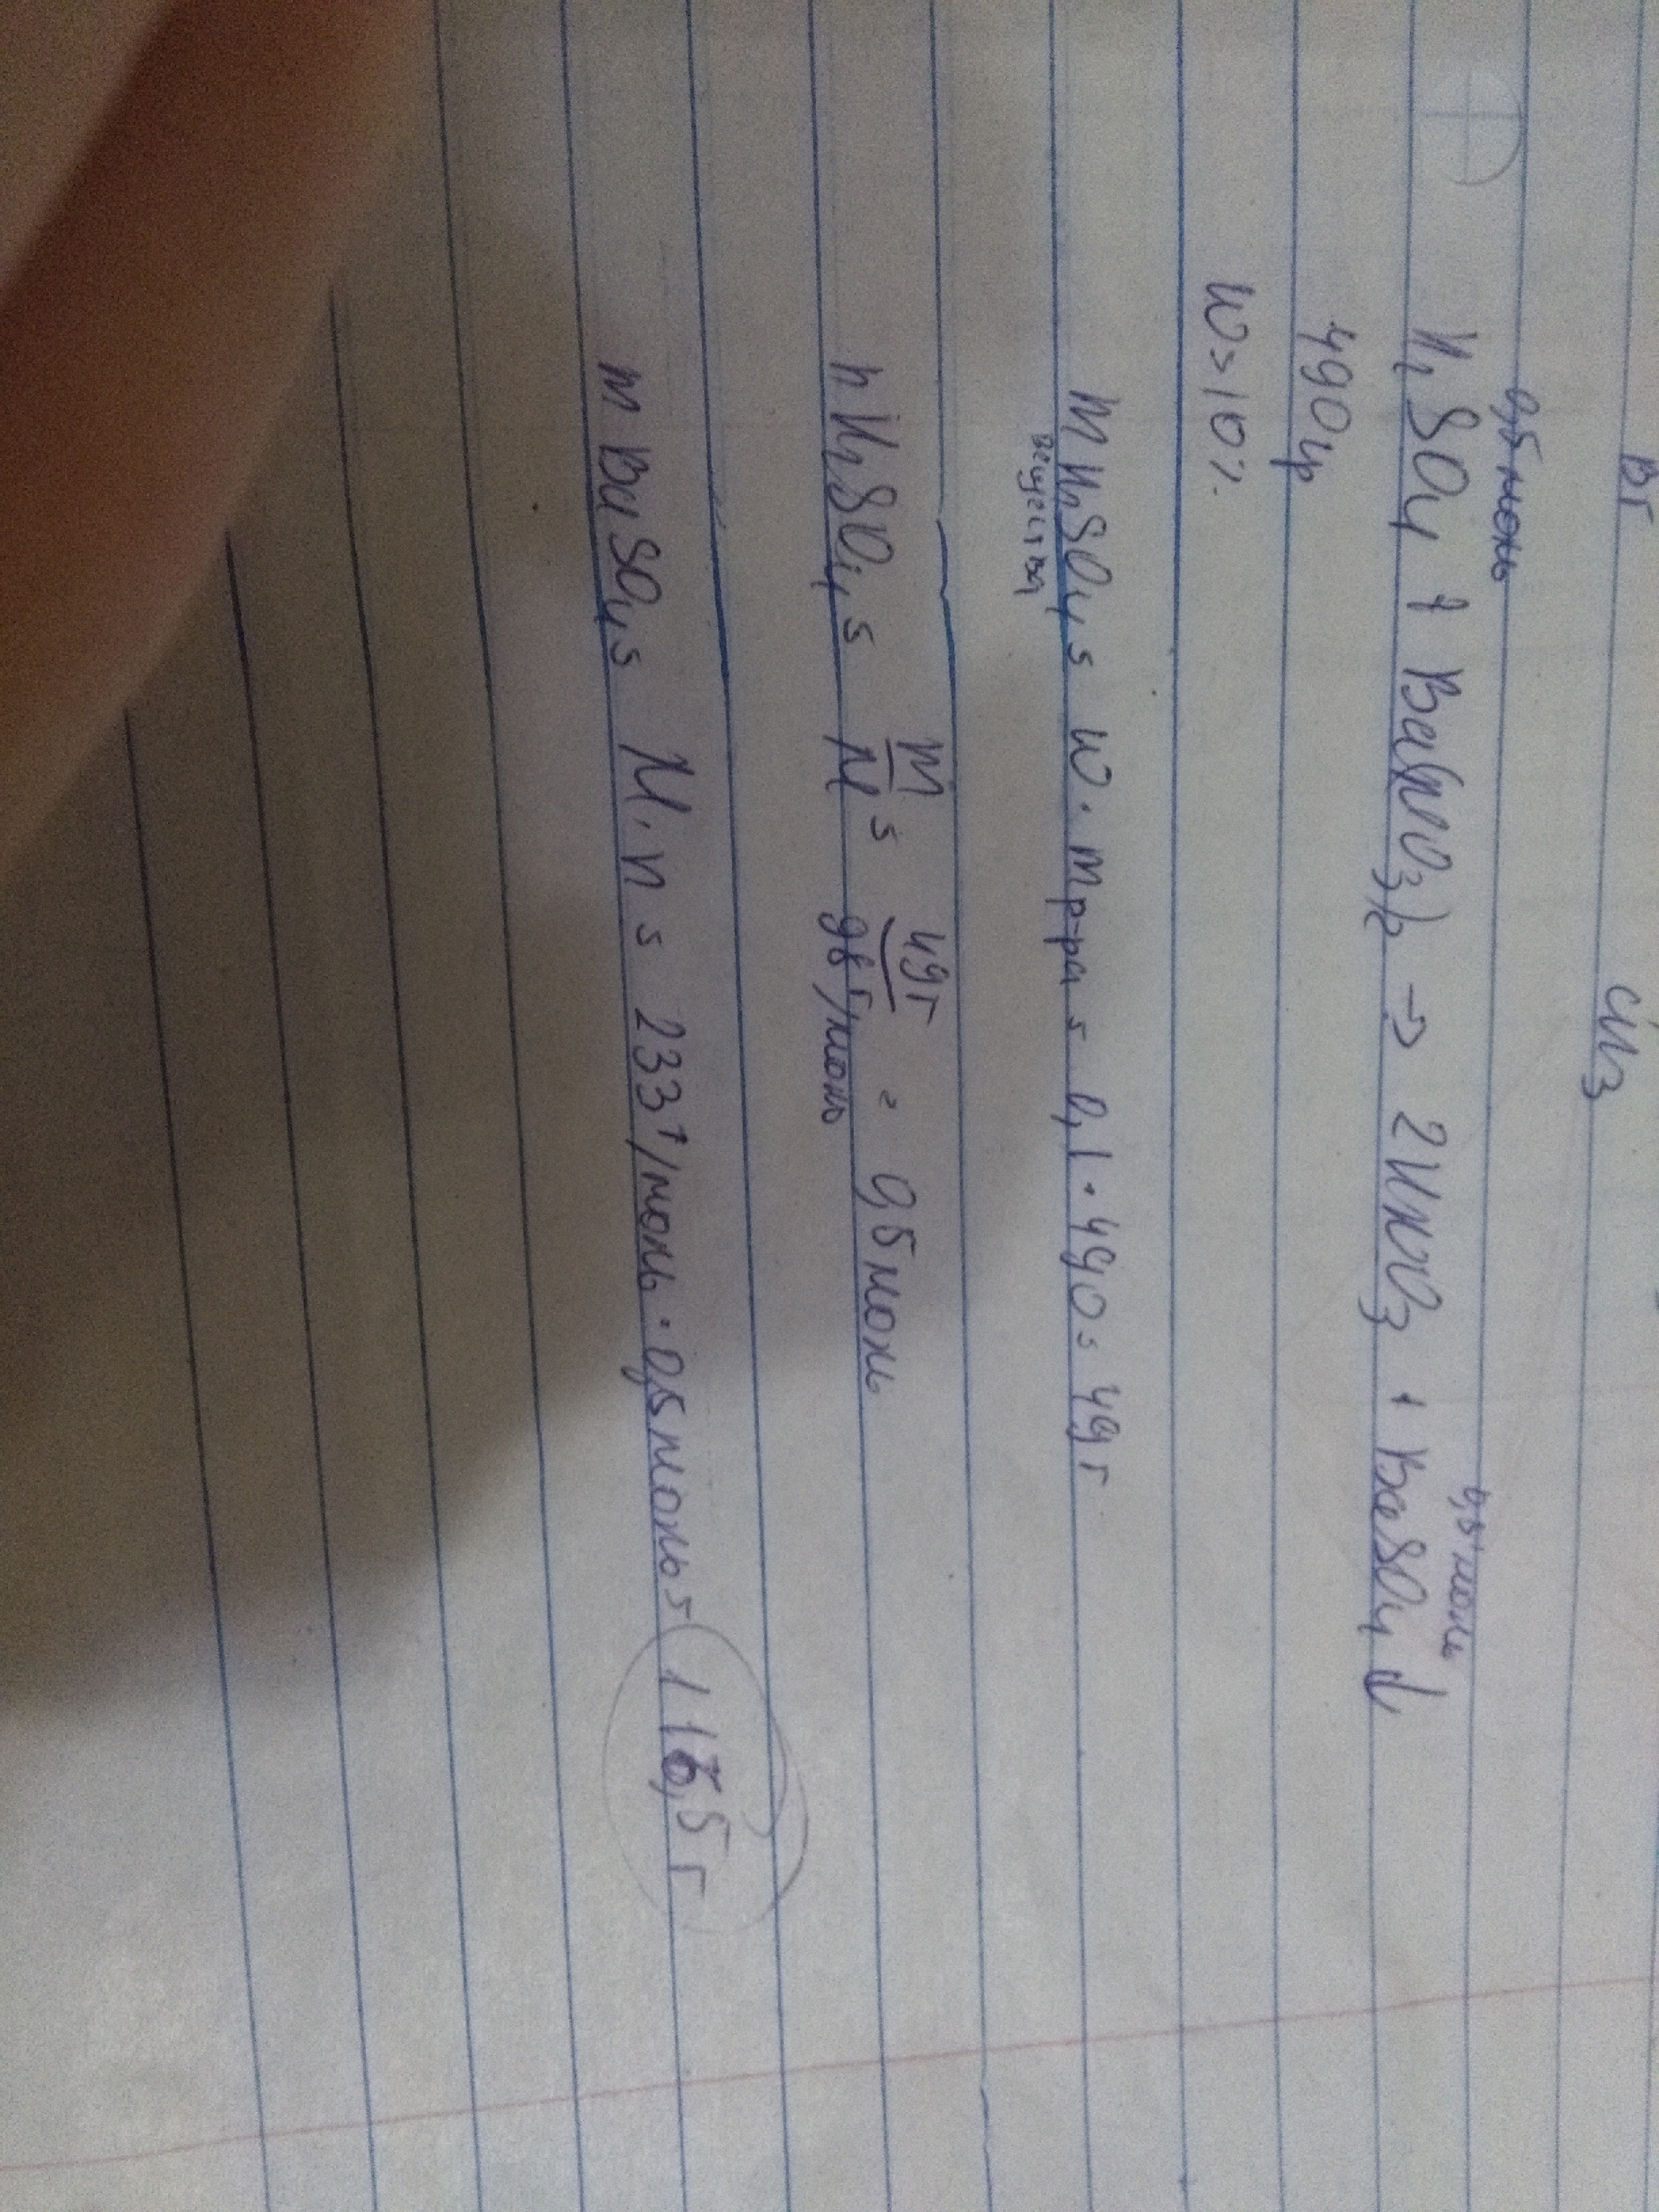 ВГ СИЗ
0,5 моль 0,5 моль
H₂SO₄ + Ba(NO₃)₂ → 2HNO₃ + BaSO₄↓
490 гр
W = 10%
m H₂SO₄ = w · m р-ра = 0,1 · 490 = 49 г
вещества
n H₂SO₄ = m/M = 49г/98 г/моль = 0,5 моль
m BaSO₄ = M · n = 233 г/моль · 0,5 моль = 116,5 г